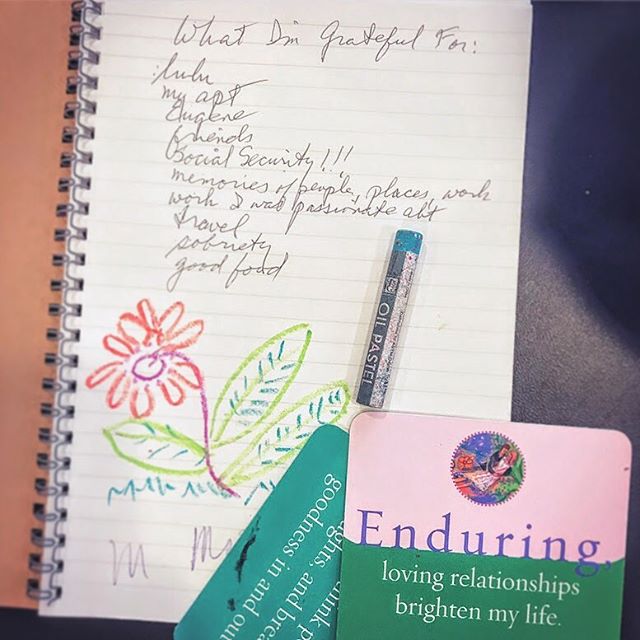 What I'm Grateful For:
lulu
my apt
Eugene
friends
Social Security!!!
memories of people, places, work
work I was passionate abt
travel
sobriety
good food
OIL PASTEL
Enduring,
loving relationships
brighten my life.
think p
ghts, and brea
goodness in and out